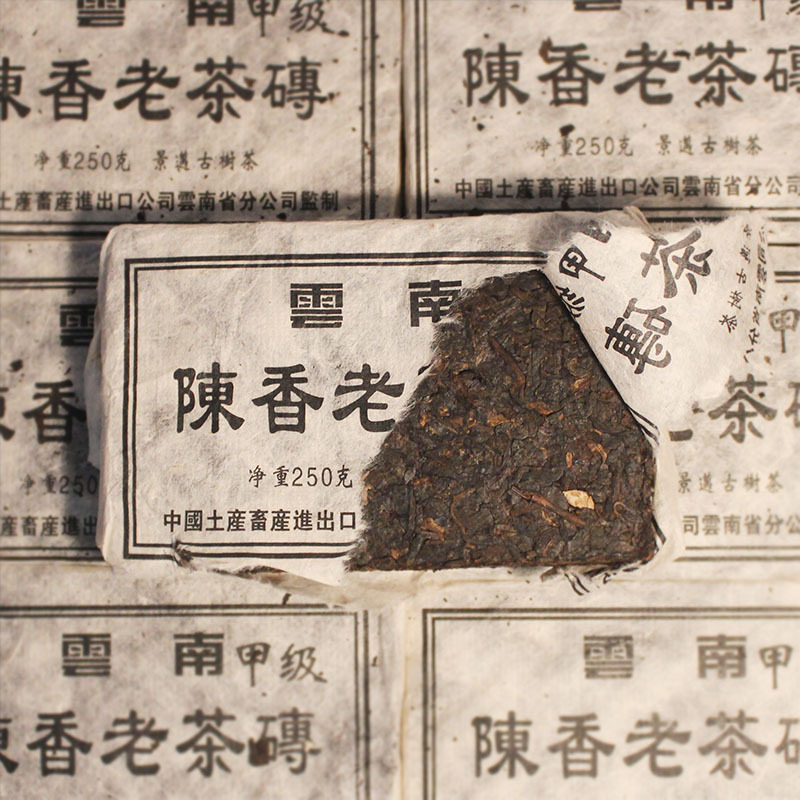 雲南甲级
陳香老茶磚
净重250克 景邁古樹茶
土産畜産進出口公司雲南省分公司監制
雲南甲
陳香老茶磚
净重250克 景邁古樹茶
中國土産畜産進出口公司雲南省分公
雲南
陳香老
净重250克
中國土産畜産進出口
甲
茶磚
雲
香
净重250
産畜産進
甲
茶磚
景邁古樹茶
司雲南省分公
雲南甲级
陳香老茶磚
雲南甲
陳香老茶磚